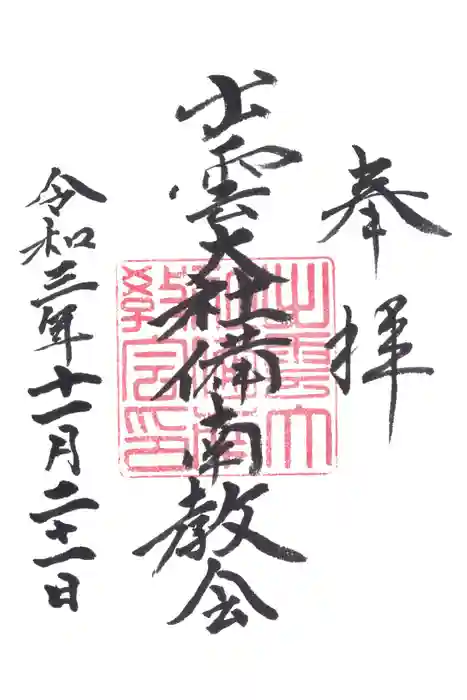 奉拝
出雲大社備南教会
出雲大
社備南
教会印
令和三年十一月二十一日